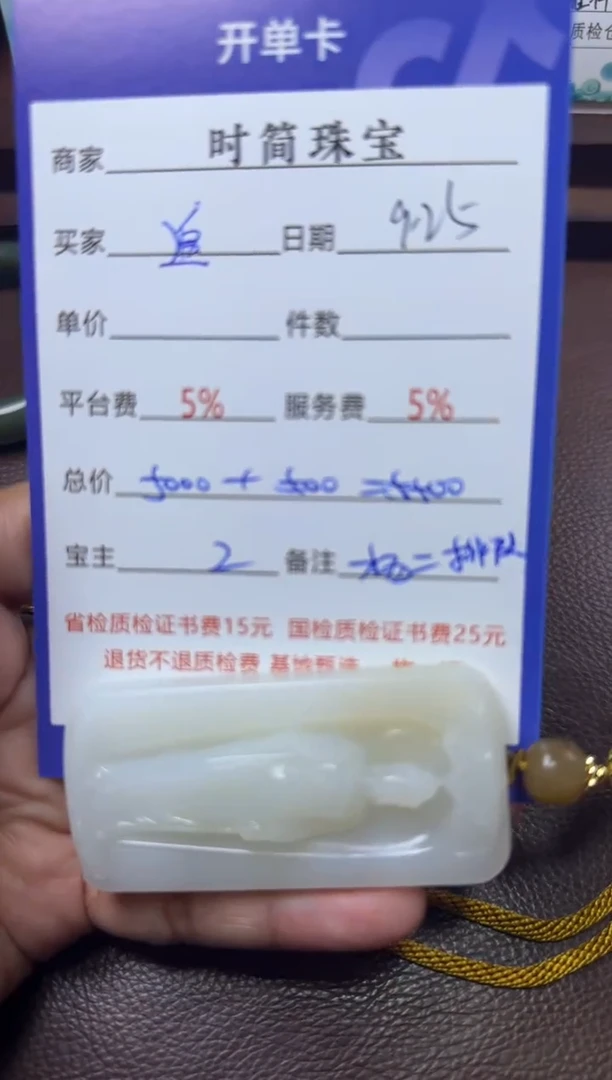 开单卡
商家 时简珠宝
买家 日期 9.25
单价 件数
平台费 5% 服务费 5%
总价 5000 + 500 =
宝主 2 备注
省检质检证书费15元 国检质检证书费25元
退货不退质检费 基地甄选
质检仓